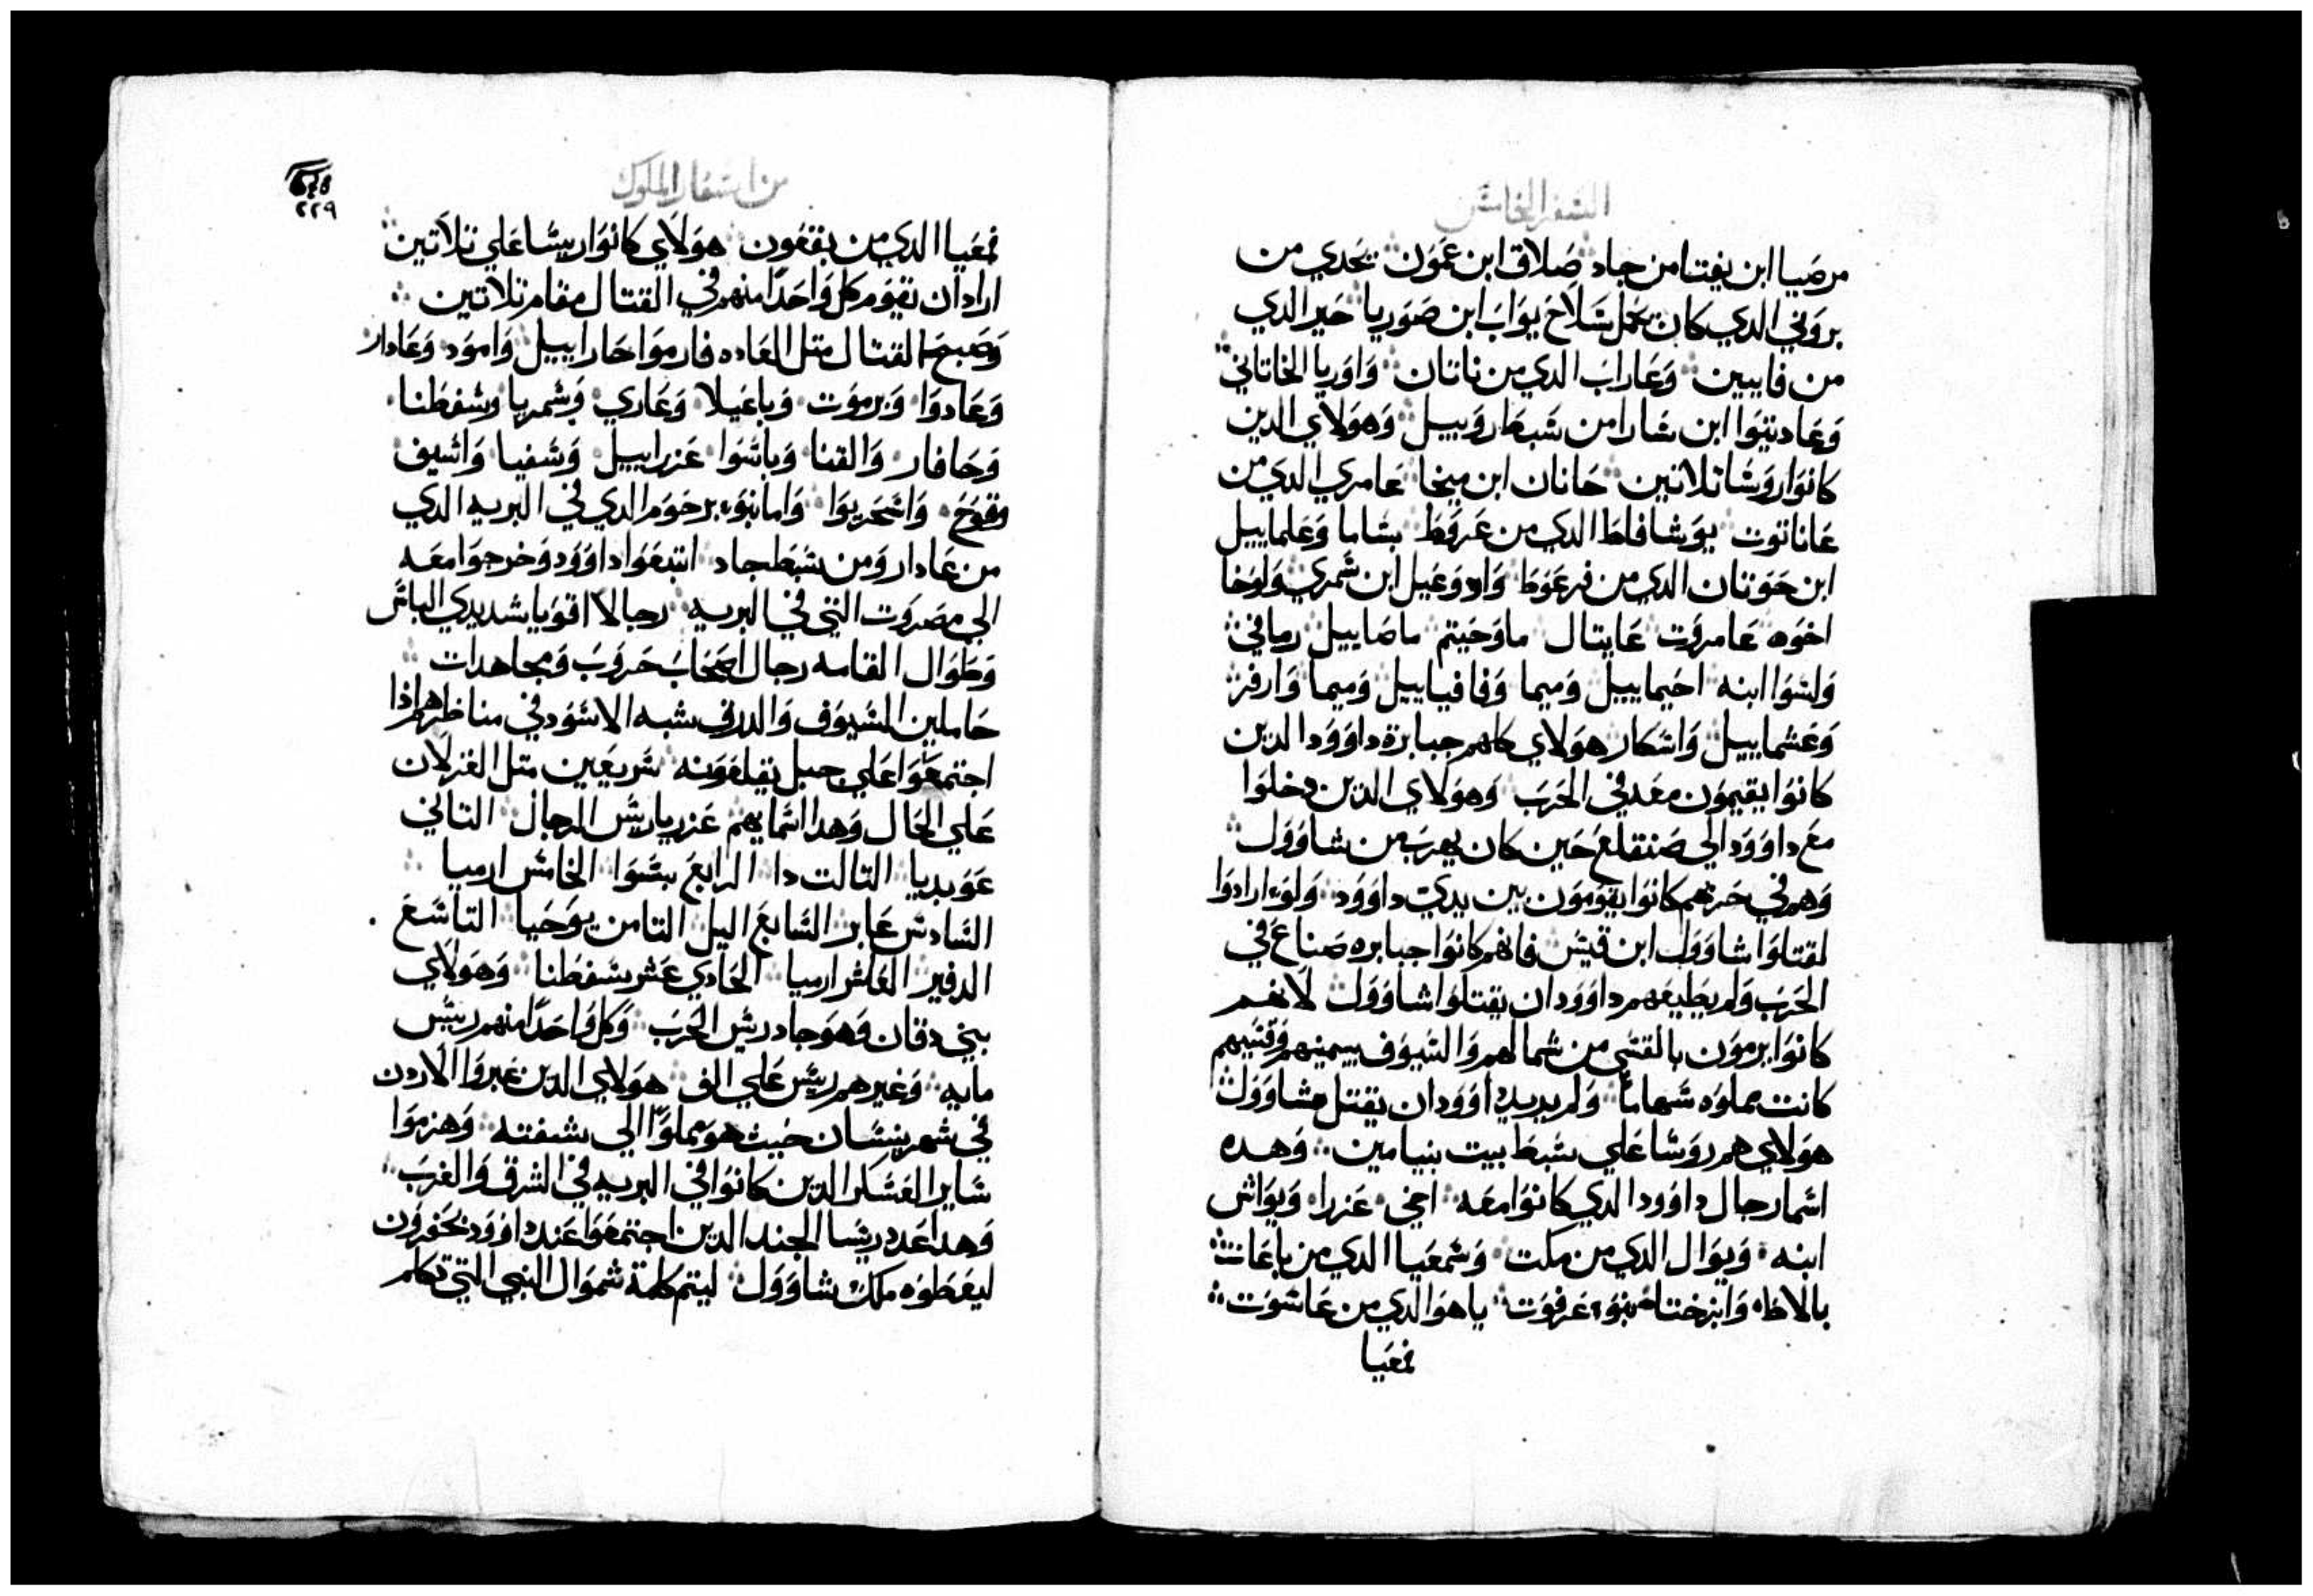 السفر الخامس
مرصيا ابن يفتا من جاد صلاق ابن عمون نحدي من
بروني الذي كان يحمل سلاح يواب ابن صوريا حير الذي
من فايبين وعاراب الدي من ناتان واوريا الحاتاني
وعادنينوا ابن سارا من سبط روبيل وهولاي الدين
كانوا روسا تلاتين حانان ابن ميخا عامري الدي من
عاناتوت يوشافاط الدي من عرقوط بساما وعلماييل
ابن حوتان الدي من فرعوط وادوعيل ابن شمري ويوخا
اخوه عاموت عايتال ماوحيتم ماصاييل رماني
ولسوا ابنه احيماييل وميما وفافياييل وميما وارفز
وعشماييل واسكار هولاي كلهم جبابرة داوود الدين
كانوا يقيمون معه في الحرب وهولاي الدين دخلوا
مع داوود الي صنقلغ حين كان يهرب من شاوول
وهم في حربهم كانوا يقومون بين يدي داوود ولو ارادوا
لقتلوا شاوول ابن قيس فانهم كانوا جبابره صناع في
الحرب ولم يطيعهم داوود ان يقتلوا شاوول لانهم
كانوا يرمون بالقسي من شمالهم والسيوف بيمينهم وقسيهم
كانت مملوه سهاما ولم يريد داوود ان يقتل شاوول
هولاي هم روسا علي سبط بيت بنيامين وهده
اسما رجال داوود الدي كانوا معه اخي عزرا ويواش
ابنه ويوال الدي من مكت وشمعيا الدي من باعات
بالاطا وابزختا بنو عرفوت ياهوا الدي من عاسوت
نمعيا
من اسفار الملوك
٢٢٩
نمعيا الدي من بقعون هولاي كانوا ريسا علي تلاتين
اراد ان يقوم كل واحدا منهم في القتال مقام تلاتين
وصبح القتال متل العاده فارموا حاراييل وامود وعادار
وعادوا ويرموت وباعيلا وعاري وشمريا وشفطنا
وحافار والقنا وباسوا عزراييل وشفيا واسيف
وقوح واسحريوا وامانبو برحوم الدي في البريه الدي
من عادار ومن سبط جاد اتبعوا داوود وخرجوا معه
الي مصروت التي في البريه رجالا اقويا شديدي الباس
وطوال القامه رجال اصحاب حروب ومجاهدات
حاملين السيوف والدرق شبه الاسود في مناظرهم اذا
اجتمعوا علي جبل يقلعونه سريعين متل الغزلان
علي الجبال وهدا اسمايهم عزريا ريس الرجال التاني
عوبديا التالت دا الرابع بسوا الخامس ارميا
السادس عابر السابع اليل التامن يوحيا التاسع
الدفير العاشر ارميا الحادي عشر سفطنا وهولاي
بني دقان وهو جاد ريس الحرب وكل واحدا منهم ريس
مايه وغيرهم ريس علي الف هولاي الدين عبروا الاردن
في شهر نيسان حيت هو مملوا الي شفته وهزموا
ساير العسكر الدين كانوا في البريه في الشرق والغرب
وهدا عدد ريسا الجند الدين اجتمعوا عند داوود بحفرون
ليعطوه ملك شاوول ليتم كلمة شموال النبي التي تكلم